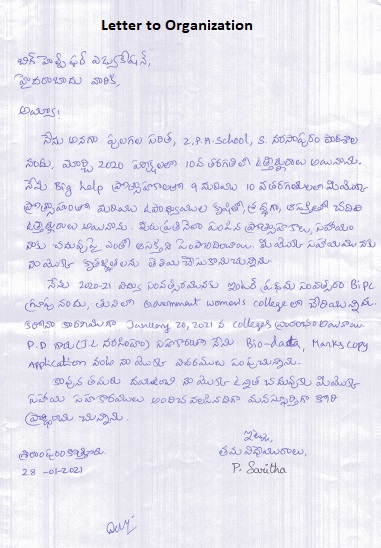 Letter to Organization
బిగ్ హెల్ప్ ఫర్ ఎడ్యుకేషన్,
హైదరాబాదు వారికి,
అమ్మా!
నేను అనగా పులగల సరిత, Z.P.H.School, S. నరసాపురం పాఠశాల
నందు, మార్చి 2020 పరీక్షలలో 10వ తరగతిలో ఉత్తీర్ణురాలు అయినాను.
నేను Big help ప్రోత్సాహకాలతో 9 మరియు 10 వ తరగతులలో మీ యొక్క
ప్రోత్సాహంతో మరియు ఉపాధ్యాయుల కృషితో, శ్రద్ధగా, ఆసక్తితో చదివి
ఉత్తీర్ణురాలు అయినాను. మీరు ప్రతినెలా పంపిన ప్రోత్సాహకాలు, సహాయం
నాకు చదువుపై ఎంతో ఆసక్తిని పెంపొందించాయి. మీ యొక్క సహాయమునకు
నా యొక్క కృతజ్ఞతలను తెలియ చేసుకొనుచున్నాను.
నేను 2020-21 విద్యా సంవత్సరమునకు ఇంటర్ ప్రథమ సంవత్సరం BiPC
గ్రూపు నందు, Government women's college లో చేరియున్నాను.
కరోనా కారణముగా January 20, 2021 న colleges ప్రారంభం అయినాయి.
P.D గారు సహకారంతో నేను Bio-data, Marks copy
Application వంటి నా యొక్క వివరములు పంపుచున్నాను.
కావున తమరు దయవుంచి నా యొక్క ఉన్నత చదువుకు మీ యొక్క
సహాయ సహకారములు అందించవలసినదిగా మనస్ఫూర్తిగా కోరి
ప్రార్థించుచున్నాను.
ఇట్లు,
తమ విధేయురాలు,
28-01-2021
P. Saritha